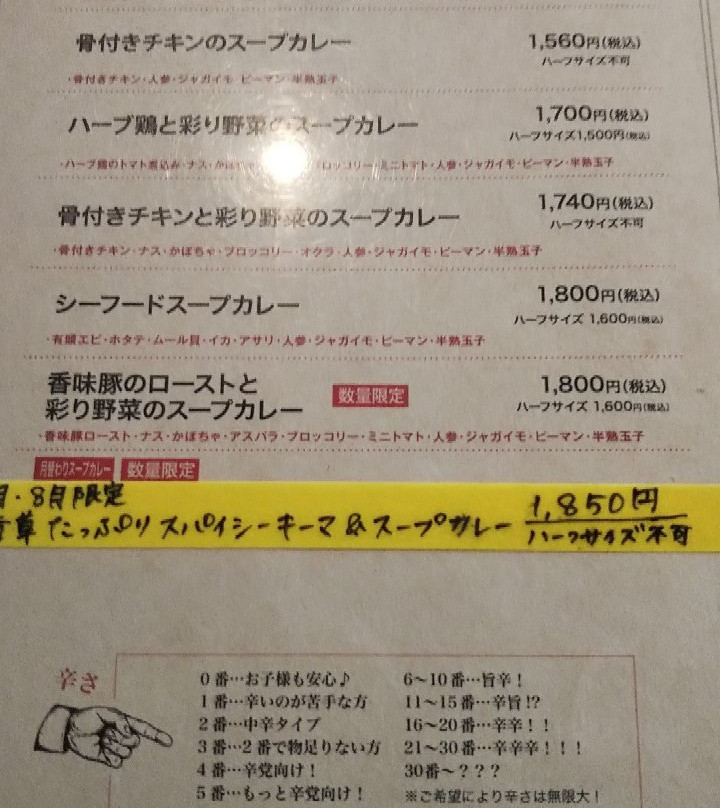 骨付きチキンのスープカレー 1,560円(税込)
ハーフサイズ不可
・骨付きチキン・人参・ジャガイモ・ピーマン・半熟玉子
ハーブ鶏と彩り野菜のスープカレー 1,700円(税込)
ハーフサイズ1,500円(税込)
・ハーブ鶏のトマト煮込み・ナス・かぼちゃ ブロッコリー・ミニトマト・人参・ジャガイモ・ピーマン・半熟玉子
骨付きチキンと彩り野菜のスープカレー 1,740円(税込)
ハーフサイズ不可
・骨付きチキン・ナス・かぼちゃ・ブロッコリー・オクラ・人参・ジャガイモ・ピーマン・半熟玉子
シーフードスープカレー 1,800円(税込)
ハーフサイズ 1,600円(税込)
・有頭エビ・ホタテ・ムール貝・イカ・アサリ・人参・ジャガイモ・ピーマン・半熟玉子
香味豚のローストと
彩り野菜のスープカレー 数量限定 1,800円(税込)
ハーフサイズ 1,600円(税込)
・香味豚ロースト・ナス・かぼちゃ・アスパラ・ブロッコリー・ミニトマト・人参・ジャガイモ・ピーマン・半熟玉子
月替わりスープカレー 数量限定
月・8月限定
草たっぷりスパイシーキーマ&スープカレー 1,850円
ハーフサイズ不可
辛さ
0番…お子様も安心♪
1番…辛いのが苦手な方
2番…中辛タイプ
3番…2番で物足りない方
4番…辛党向け！
5番…もっと辛党向け！
6〜10番…旨辛！
11〜15番…辛旨!?
16〜20番…辛辛！！
21〜30番…辛辛辛！！！
30番〜？？？
※ご希望により辛さは無限大！